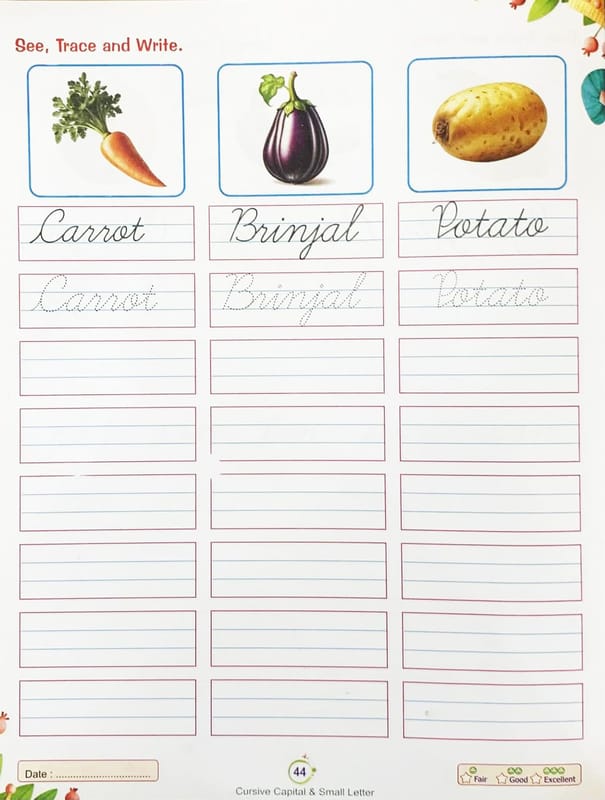 See, Trace and Write.
Carrot Brinjal Potato
Carrot Brinjal Potato
Date : ................................
44
Fair Good Excellent
Cursive Capital & Small Letter